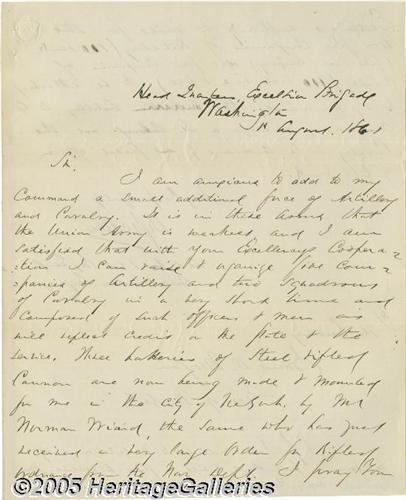 Head Quarters Excelsior Brigade
Washington
1st August. 1861
Sir.
I am anxious to add to my
Command a small additional force of Artillery
and Cavalry. It is in these arms that
the Union Army is weakest and I am
satisfied that with your Excellency's Coopera-
tion I can raise & organize five Com-
panies of Artillery and two Squadrons
of Cavalry in a very short time and
Composed of such officers & men as
will reflect credit on the State & the
service. Three batteries of Steel Rifled
Cannon are now being made & mounted
for me in the City of by Mr
Norman Wiard, the same who has just
received a very large order for Rifled
ordnance from the War Dept. I pray you
©2005 HeritageGalleries